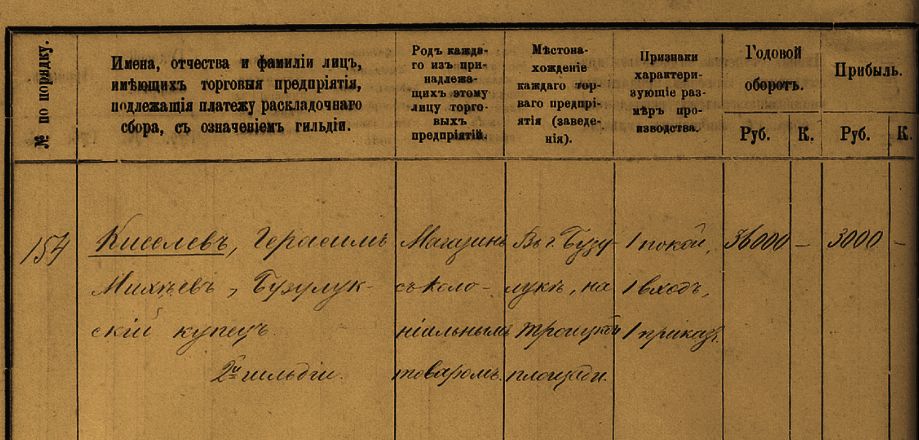 № по порядку.
Имена, отчества и фамиліи лицъ,
имѣющихъ торговыя предпріятія,
подлежащія платежу раскладочнаго
сбора, съ означеніемъ гильдіи.
Родъ каждо-
го изъ при-
надлежа-
щихъ этому
лицу торго-
выхъ
предпріятій.
Мѣстона-
хожденіе
каждаго тор-
говаго предпрі-
ятія (заведе-
нія).
Признаки
характери-
зующіе раз-
мѣръ про-
изводства.
Годовой
оборотъ.
Руб.
К.
Прибыль.
Руб.
К.
154
Киселевъ, Герасимъ
Михѣевъ, Бузулук-
скій купецъ
2й гильдіи.
Магазинъ
съ коло-
ніальнымъ
товаромъ.
Въ г. Бузу-
лукѣ, на
Троицкой
площади.
1 покой,
1 входъ,
1 приказч.
36000 —
3000 —